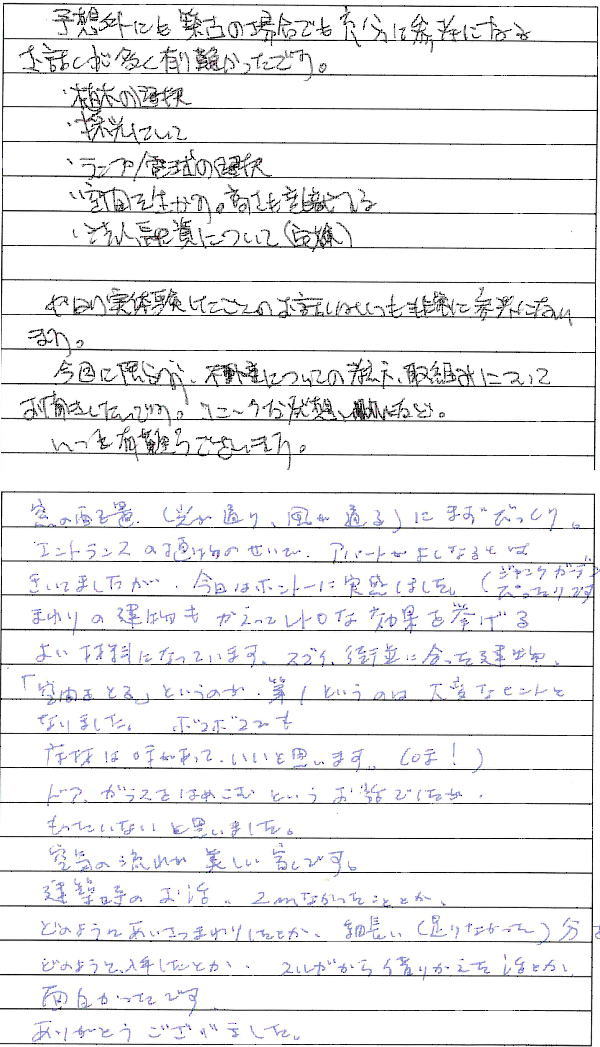 予想外にも築古の場合でも充分に参考になる
お話しが多く有り難かったです。
・植木の選択
・採光について
・ランプ/電球の選択
・空間を生かす。高さも意識する
融資について
やはり実体験したことのお話しはいつも非常に参考になり
ます。
今回に限らず、不動産についての考え方、取組みについて
お聞きしたいです。ユニークな発想、など。
いつも有難うございます。
窓の配置（光が通り、風が通る）にまずびっくり。
エントランスの植物のせいで、アパートがよくなるとは
きいてましたが、今回はホントーに実感しました。（ジャンクガーデン ぴったりです
まわりの建物もかえってレトロな効果を挙げる
よい材料になっています。スゴイ、街並に合った建物。
「空間をとる」というのが、第1というのは大変なヒントと
なりました。ボコボコでも
床材は味があって、いいと思います。
ドア、ガラスをはめこむというお話でしたが、
もったいないと思いました。
空気の流れが美しい家です。
建築時のお話、2mなかったこととか、
どのようにあいさつまわりしたとか、細長い（足りなかった）分を
どのように入手したとか、スルガから借りかえた話とか、
面白かったです
ありがとうございました。